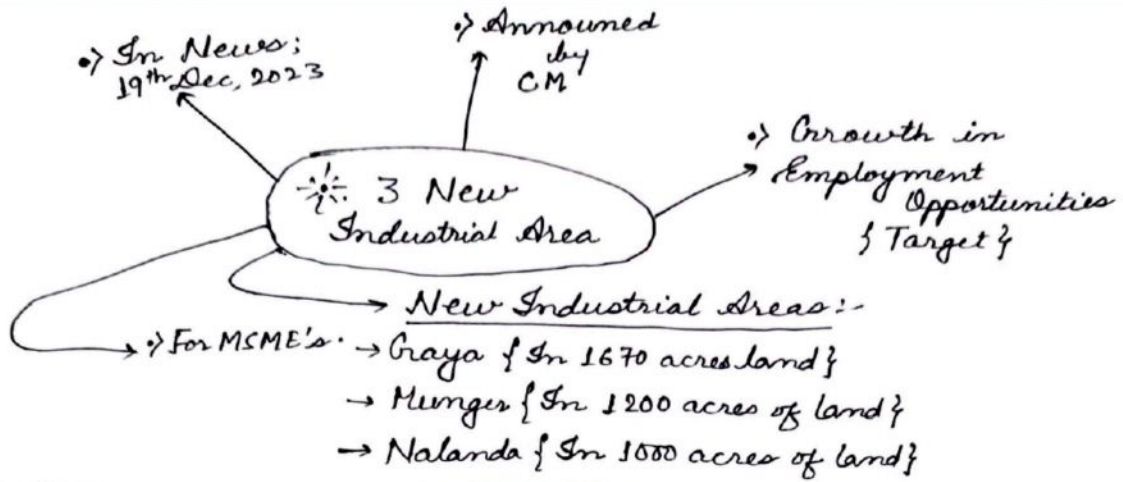 •> In News;
19th Dec, 2023
•> Announed
by
CM
•> Growth in
Employment
Opportunities
{Target}
3 New
Industrial Area
New Industrial Areas:-
•> For MSME's.
→ Gaya {In 1670 acres land}
→ Munger {In 1200 acres of land}
→ Nalanda {In 1000 acres of land}